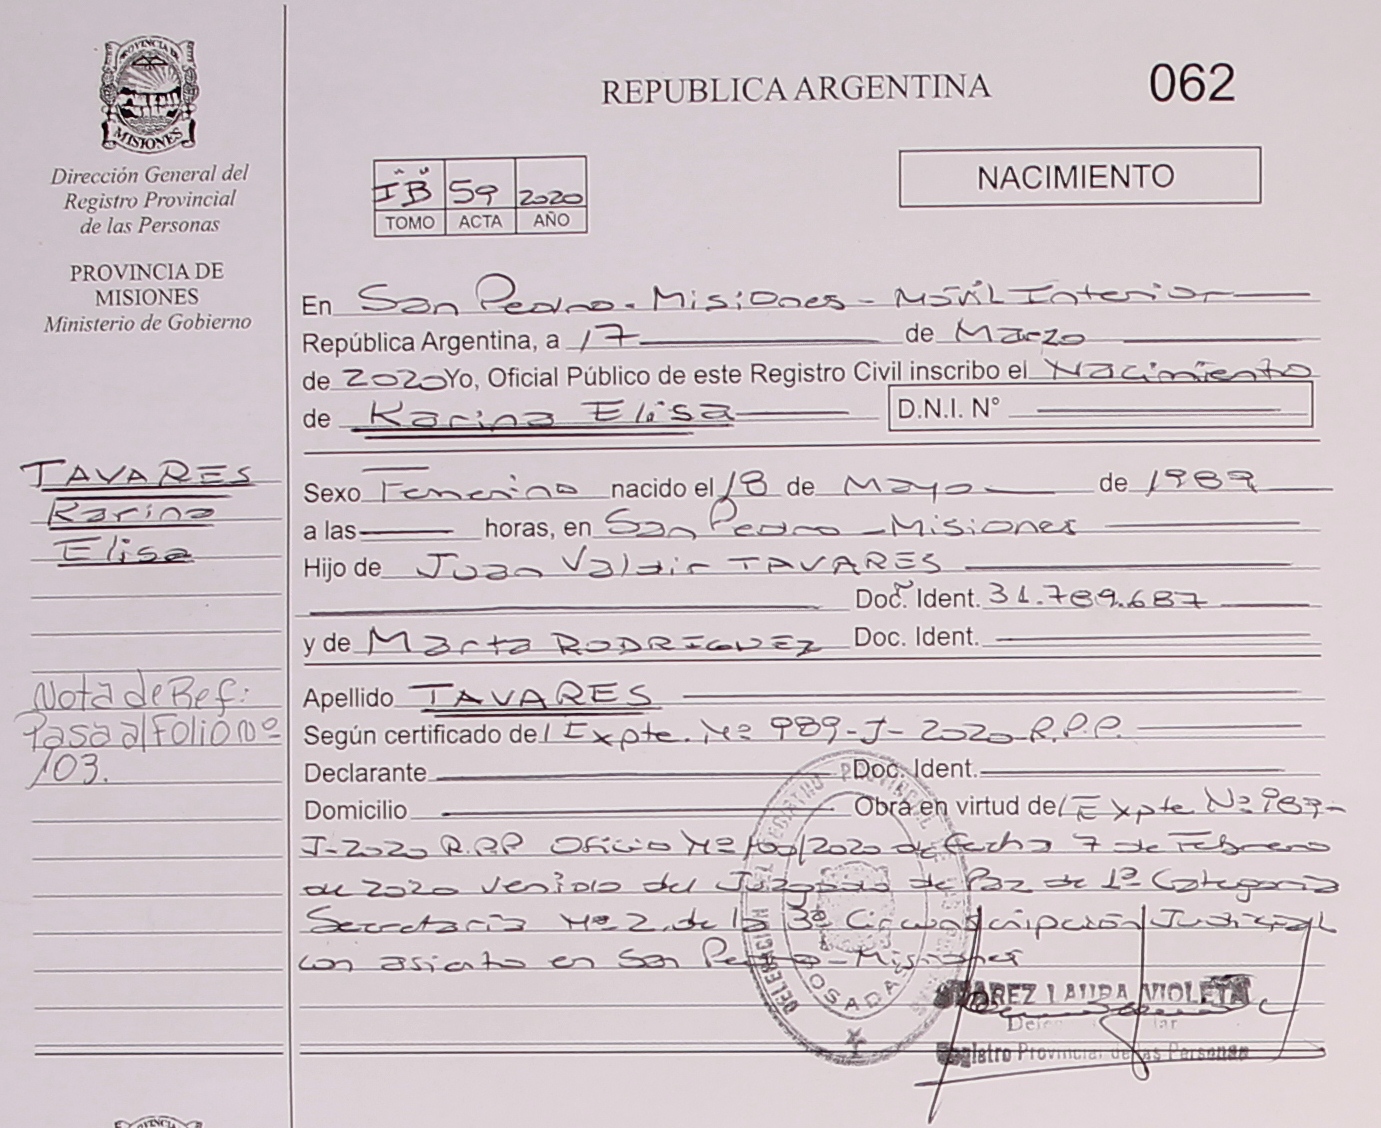 PROVINCIA DE
MISIONES
Dirección General del
Registro Provincial
de las Personas
PROVINCIA DE
MISIONES
Ministerio de Gobierno
TAVARES
Karina
Elisa
Nota de Ref:
Pasa al Folio nº
103.
REPUBLICA ARGENTINA
062
IB 59 2020
TOMO ACTA AÑO
NACIMIENTO
En San Pedro - Misiones - Móvil Interior
República Argentina, a 17 de Marzo
de 2020 Yo, Oficial Público de este Registro Civil inscribo el Nacimiento
de Karina Elisa D.N.I. N°
Sexo Femenino nacido el 18 de Mayo de 1989
a las horas, en San Pedro - Misiones
Hijo de Juan Valdir TAVARES
Doc. Ident. 31.789.687
y de Marta RODRIGUEZ Doc. Ident.
Apellido TAVARES
Según certificado del Expte. Nº 989-J-2020 R.P.P.
Declarante Doc. Ident.
Domicilio Obra en virtud del Expte Nº 989-
J-2020 R.P.P Oficio Nº 100/2020 de fecha 7 de Febrero
de 2020 venido del Juzgado de Paz de 1ª Categoria
Secretaria Nº 2. de la 3ª Circunscripción Judicial
con asiento en San Pedro - Misiones
POSADAS
LAURA VIOLETA
Registro Provincial de las Personas